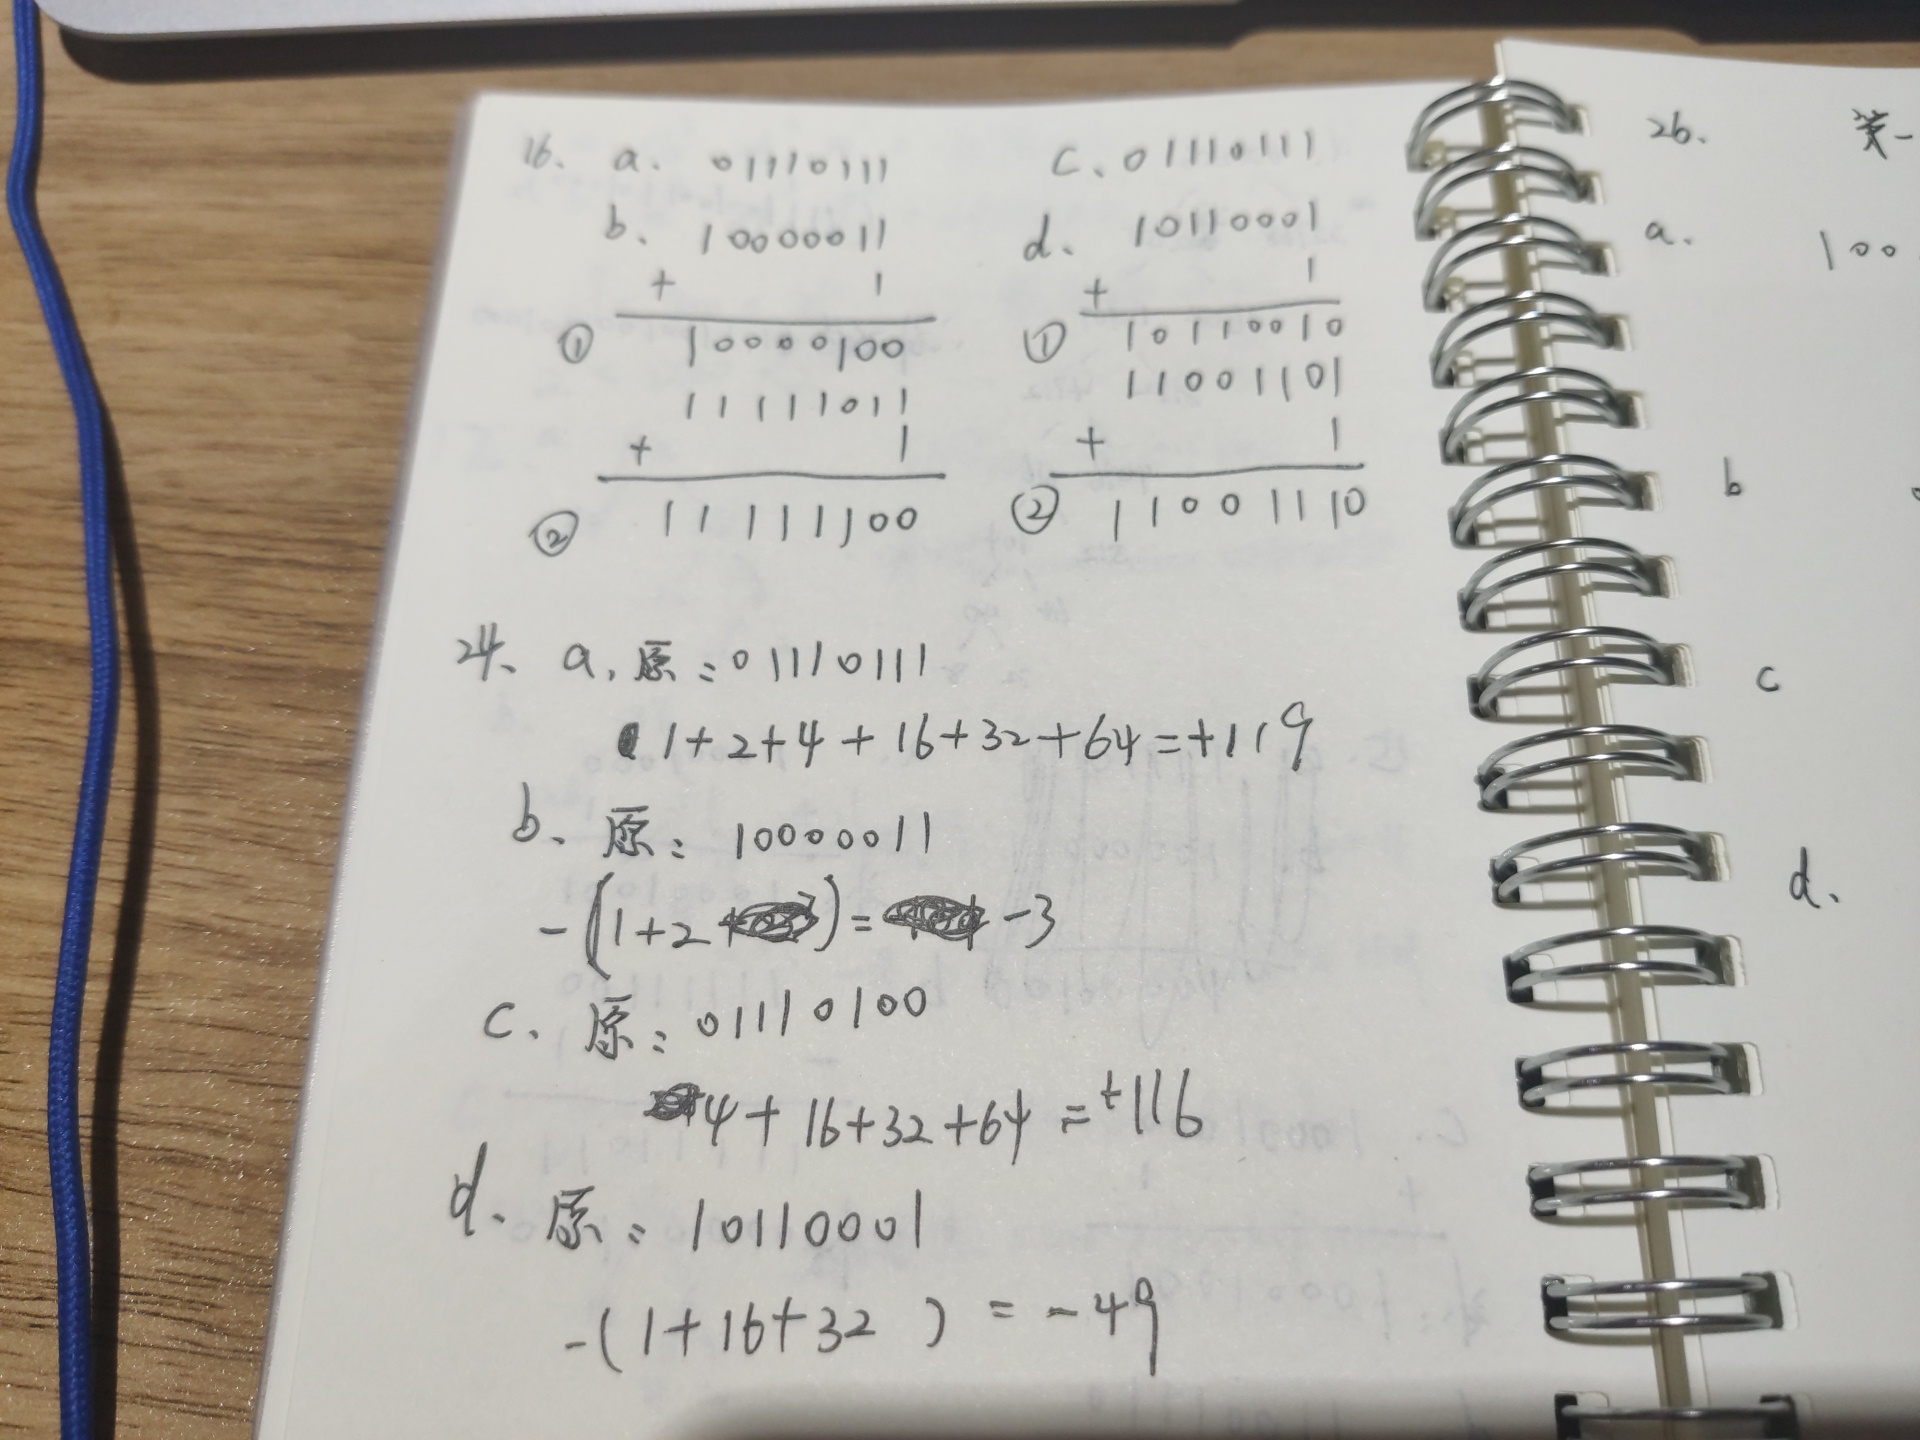 16、 a. 01110111
b. 10000011
+ 1
① 10000100
11111011
+ 1
② 11111100
c、01110111
d、 10110001
+ 1
① 10110010
11001101
+ 1
② 11001110
24、 a, 原:01110111
1+2+4+16+32+64=+119
b、原:10000011
-(1+2)=-3
c、原:01110100
4+16+32+64=+116
d、原:10110001
-(1+16+32)=-49
26. 第一
a. 100
b
c
d.